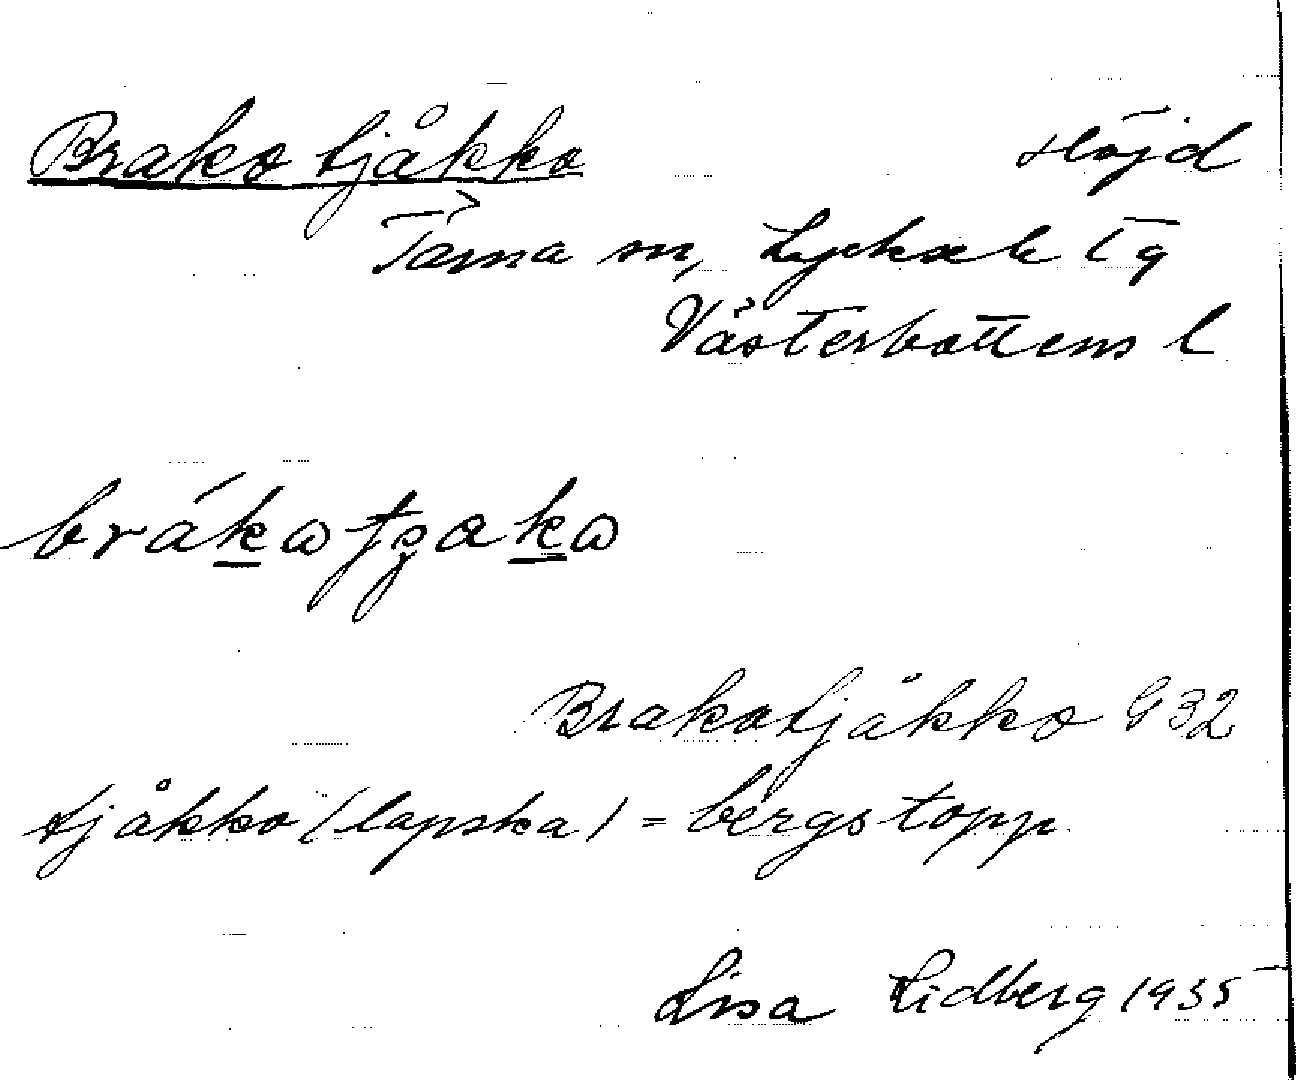 Brakotjåkko Höjd
Tärna sn, Lycksele tg
Västerbottens l
Brakotjåkko G 32
tjåkko (lapska) = bergstopp
Lisa Lidberg 1935